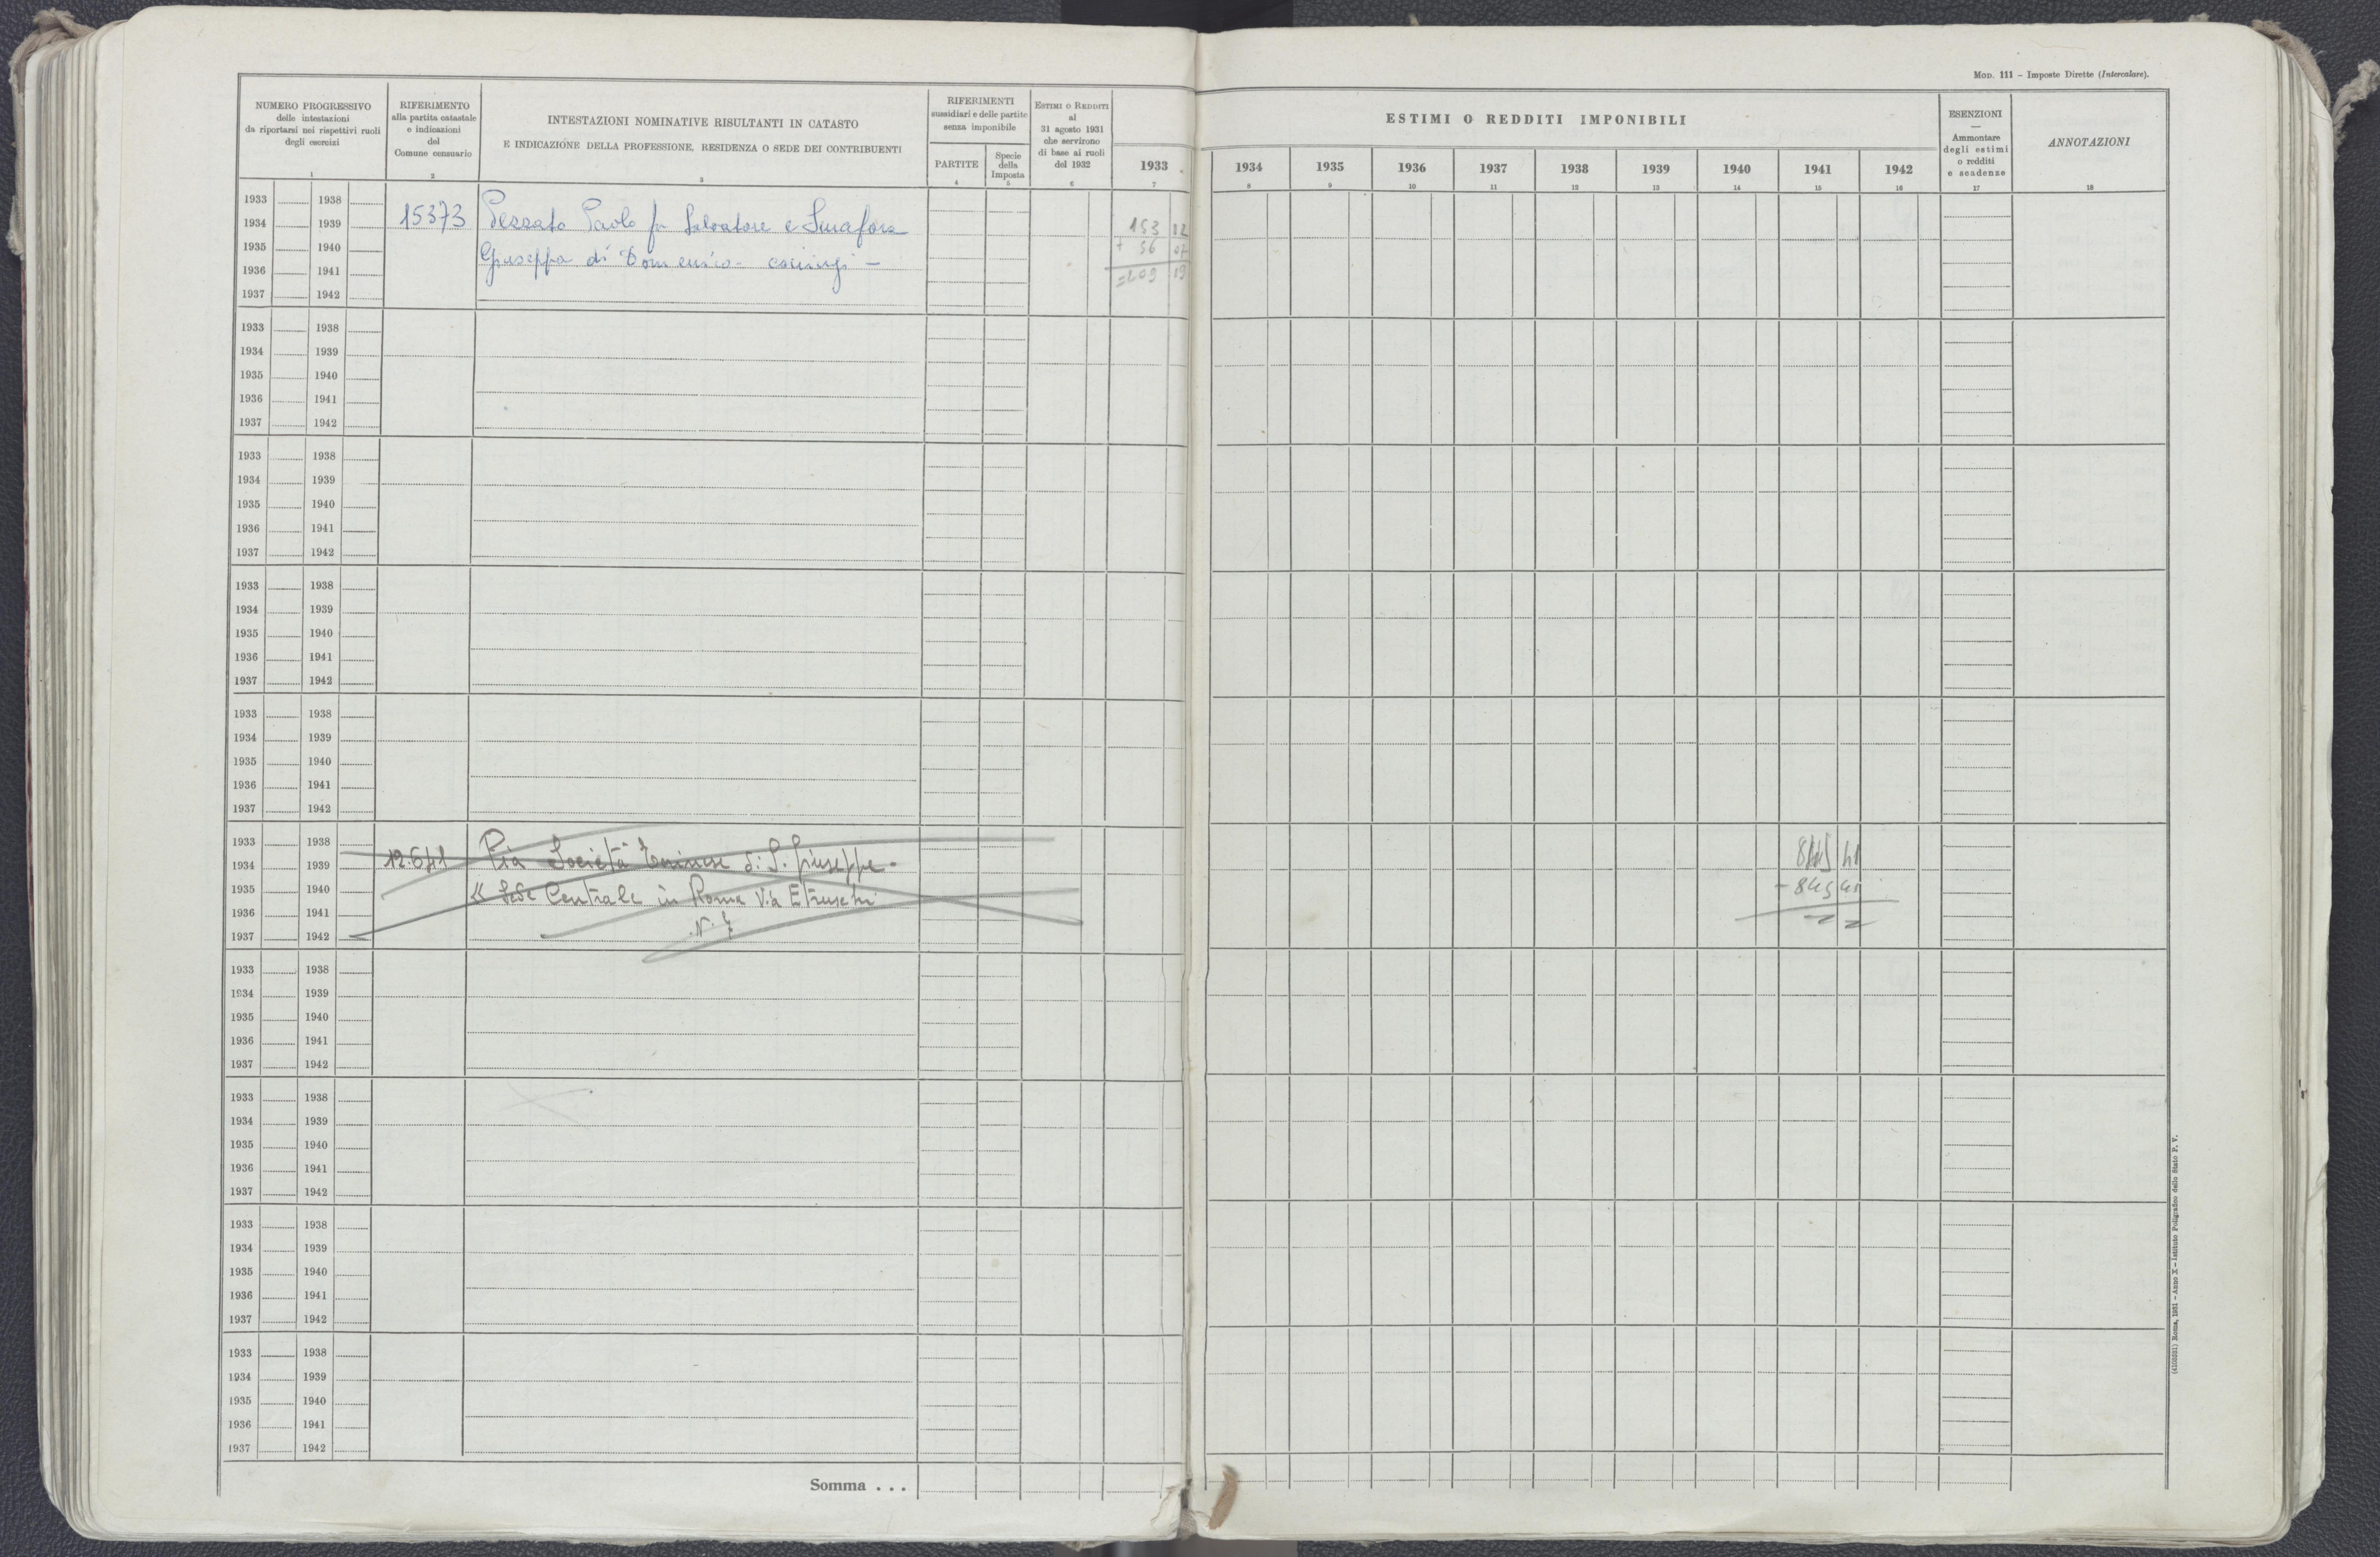 MOD. 111 – Imposte Dirette (Intercalare).
NUMERO PROGRESSIVO
delle intestazioni
da riportarsi nei rispettivi ruoli
degli esercizi
1
RIFERIMENTO
alla partita catastale
e indicazioni
del
Comune censuario
2
INTESTAZIONI NOMINATIVE RISULTANTI IN CATASTO
E INDICAZIONE DELLA PROFESSIONE, RESIDENZA O SEDE DEI CONTRIBUENTI
3
RIFERIMENTI
sussidiari e delle partite
senza imponibile
PARTITE
4
Specie
della
Imposta
5
ESTIMI O REDDITI
al
31 agosto 1931
che servirono
di base ai ruoli
del 1932
6
ESTIMI O REDDITI IMPONIBILI
1933 1934 1935 1936 1937 1938 1939 1940 1941 1942
7 8 9 10 11 12 13 14 15 16
ESENZIONI
—
Ammontare
degli estimi
o redditi
e scadenze
17
ANNOTAZIONI
18
1933 1938
1934 1939 15373 Pezzato Paolo fu Salvatore e 153 12
1935 1940 Giuseppa di Domenico - coniugi - + 56 07
1936 1941 =209 19
1937 1942
1933 1938
1934 1939
1935 1940
1936 1941
1937 1942
1933 1938
1934 1939
1935 1940
1936 1941
1937 1942
1933 1938
1934 1939
1935 1940
1936 1941
1937 1942
1933 1938
1934 1939
1935 1940
1936 1941
1937 1942
1933 1938
1934 1939 12.641 Pia Società Torinese di S. Giuseppe - 845 41
1935 1940 Sede Centrale in Roma Via Etruschi - 845 41
1936 1941 N.
1937 1942
1933 1938
1934 1939
1935 1940
1936 1941
1937 1942
1933 1938
1934 1939
1935 1940
1936 1941
1937 1942
1933 1938
1934 1939
1935 1940
1936 1941
1937 1942
1933 1938
1934 1939
1935 1940
1936 1941
1937 1942
Somma . . .
(4105031) Roma, 1931 – Anno X – Istituto Poligrafico dello Stato P. V.